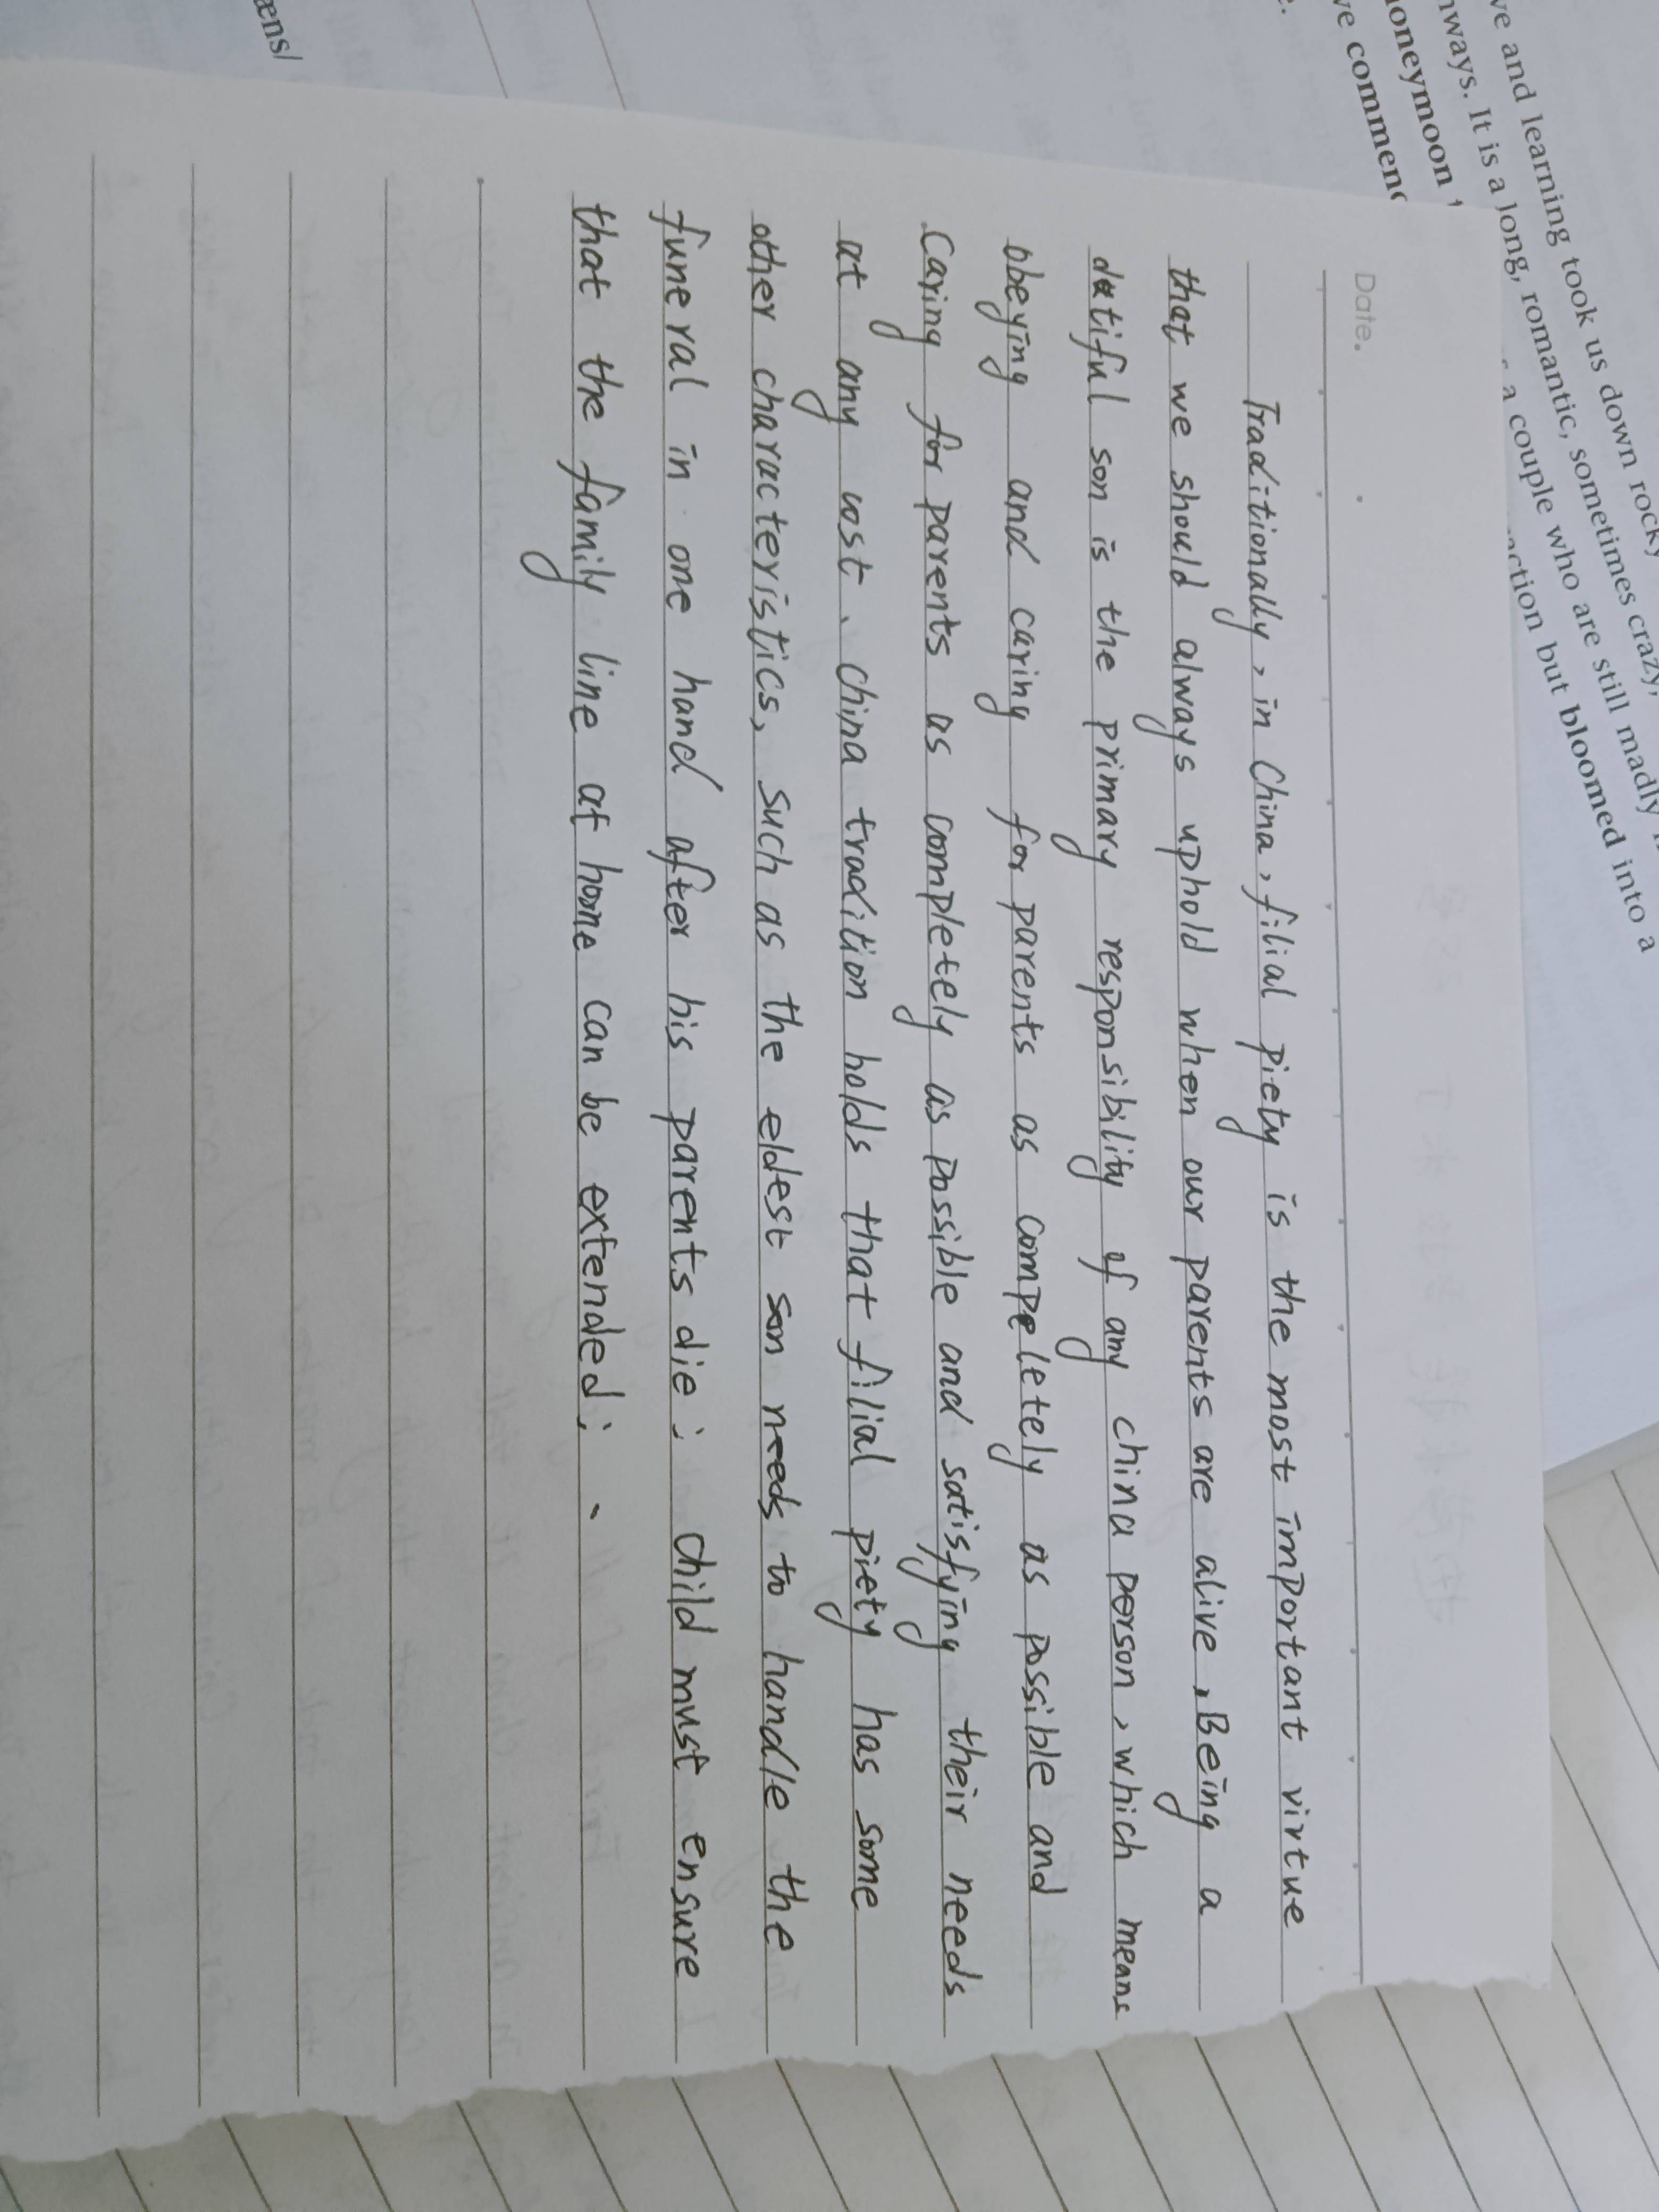 ve and learning took us down rocky
ways. It is a long, romantic, sometimes crazy,
oneymoon
a couple who are still madly
ve commenc
ction but bloomed into a
æns/
Date.
Traditionally, in China, filial piety is the most important virtue
that we should always uphold when our parents are alive, Being a
dutiful son is the primary responsibility of any china person, which means
obeying and caring for parents as completely as possible and
caring for parents as completely as possible and satisfying their needs
at any cost. china tradition holds that filial piety has some
other characteristics, such as the eldest son needs to handle the
funeral in one hand after his parents die; child must ensure
that the family line at home can be extended;